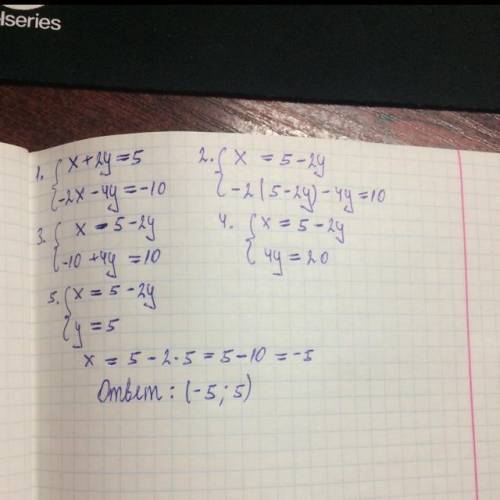 elseries
1. { x + 2y = 5
-2x - 4y = -10
2. { x = 5 - 2y
-2(5 - 2y) - 4y = 10
3. { x = 5 - 2y
-10 + 4y = 10
4. { x = 5 - 2y
4y = 20
5. { x = 5 - 2y
y = 5
x = 5 - 2·5 = 5 - 10 = -5
Ответ: (-5; 5)